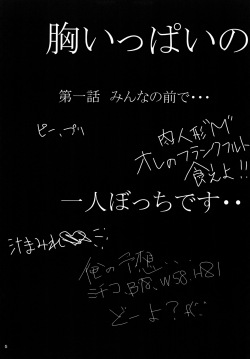 胸いっぱいの
第一話 みんなの前で・・・
ピー、プリ
肉人形"M"
オレのフランクフルト
食えよ!!
一人ぼっちです・・
汁まみれ
俺の予想...
ミチコ、B78、W58、H81
どーよ?